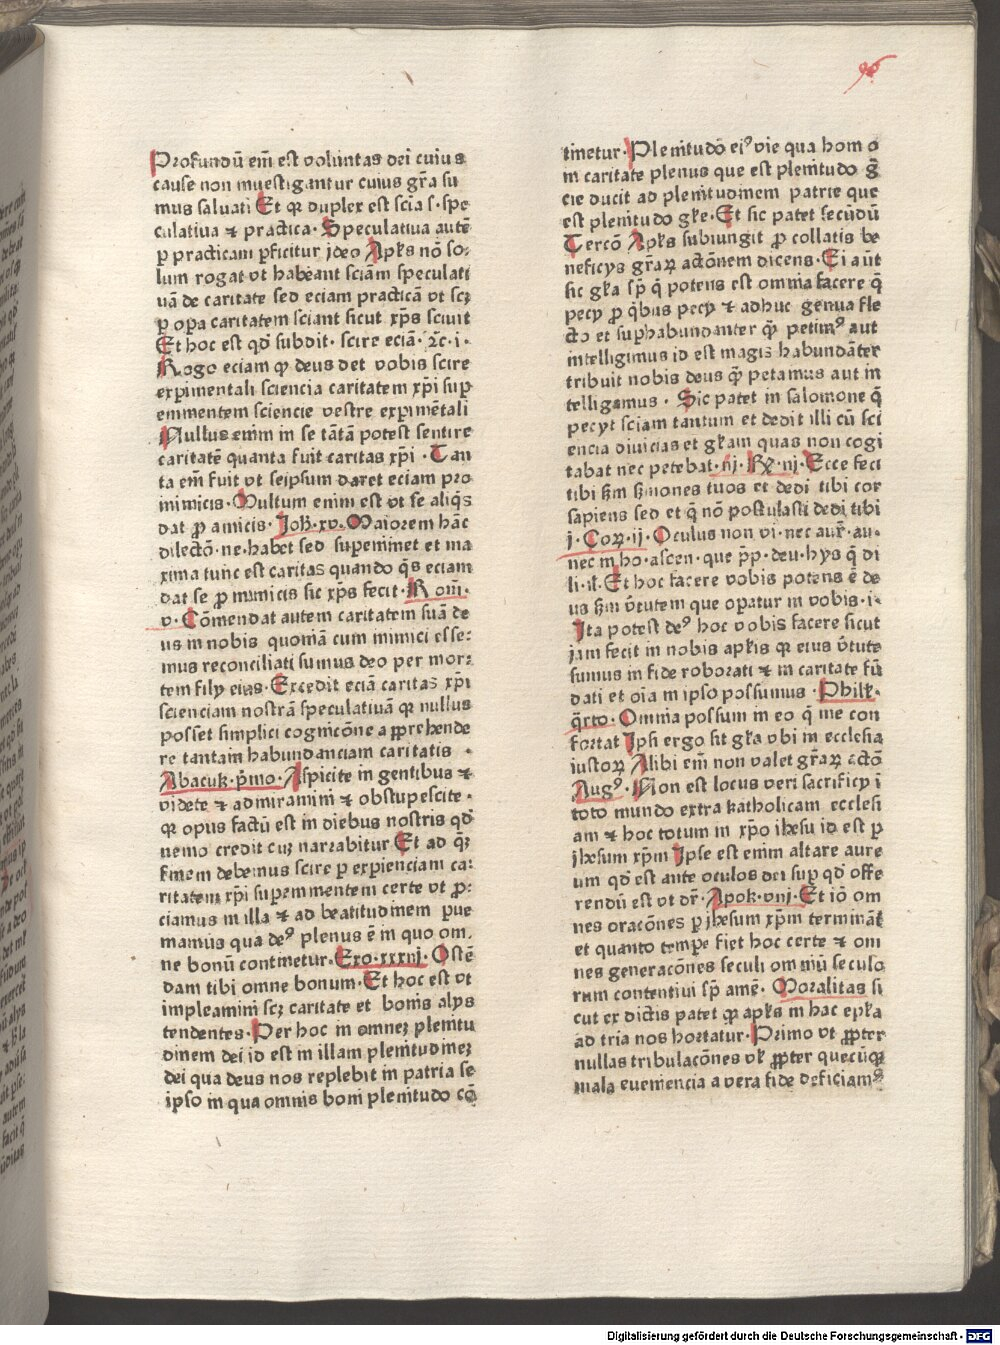 Profundū em̄ est voluntas dei cuius
cause non inuestigantur cuius gr̄a su
mus saluati Et qꝛ duplex est sciā s· spe
culatiua ⁊ practica· Speculatiua autē
ꝑ practicam ꝑficitur jdeo Apl̄s nō so⸗
lum rogat vt habeant sciām speculati
uā de caritate sed eciam practicā vt scꝫ
ꝑ oꝑa caritatem sciant sicut xp̄s sciuit
Et hoc est qd̄ subdit· scire eciā· ⁊c̄· i·
Rogo eciam ꝙ deus det vobis scire
exꝑimentali sciencia caritatem xp̄i suꝑ
eminentem sciencie vestre exꝑimētali
Nullus enim in se tātā potest sentire
caritatē quanta fuit caritas xp̄i · Tan
ta em̄ fuit vt seipsum daret eciam pro
inimicis· Multum enim est vt se aliq̄s
dat ꝓ amicis· Joh̄· xv· Maiorem hāc
dilectōn· ne· habet sed suꝑeminet et ma
xima tunc est caritas quando q̄s eciam
dat se ꝓ inimicis sic xp̄s fecit· Rom̄·
v· Cōmendat autem caritatem suā de
us in nobis quoniā cum inimici esse⸗
mus reconciliati sumus deo per mor⸗
tem filij eius· Excedit eciā caritas xp̄i
scienciam nostrā speculatiuā qꝛ nullus
posset simplici cognicōne apprehende
re tantam habundanciam caritatis ·
Abacuk· p̄mo· Aspicite in gentibus ⁊
videte ⁊ admiramini ⁊ obstupescite·
qꝛ opus factū est in diebus nostris qd̄
nemo credit cuꝫ narrabitur Et ad q̄ꝫ
finem debemus scire ꝑ exꝑienciam ca⸗
ritatem xp̄i suꝑeminentem certe vt ꝓ⸗
ciamus in illa ⁊ ad beatitudinem pue
mamus qua deꝰ plenus ē in quo om·
ne bonū continetur· Exo· xxxiij· Ostē
dam tibi omne bonum· Et hoc est vt
impleamini scꝫ caritate et bonis alijs
tendentes· Per hoc in omneꝫ plenitu
dinem dei id est in illam plenitudineꝫ
dei qua deus nos replebit in patria se
ipso in qua omnis boni plenitudo cō
tinetur· Plenitudo eiꝰ vie qua homo
in caritate plenus que est plenitudo gr̄
cie ducit ad plenitudinem patrie que
est plenitudo gl̄e· Et sic patet secūdū
Tercō Apl̄s subiungit ꝓ collatis be
neficijs gr̄aꝝ actōnem dicens· Ei aūt
sit gl̄a sp̄ q̄ potens est omnia facere q̄
pecij ꝓ q̄bus pecij ⁊ adhuc genua fle
cto et suꝑhabundanter q̄ꝫ petimꝰ aut
intelligimus id est magis habundāter
tribuit nobis deus q̄ꝫ petamus aut in
telligamus · Sic patet in salomone q̄
pecijt sciam tantum et dedit illi cū sci
encia diuicias et gl̄iam quas non cogi
tabat nec petebat· iij· Re̅· iij· Ecce feci
tibi ẜm ẜmones tuos et dedi tibi cor
sapiens sed et q̄ nō postulasti dedi tibi
j· Coꝝ· ij· Oculus non vi· nec aur̄· au·
nec in ho· ascen· que p̄p· deu· hijs q̄ di
li· il̄· Et hoc facere vobis potens ē de
us ẜm v̄tutem que oꝑatur in vobis· i·
Ita potest deꝰ hoc vobis facere sicut
jam fecit in nobis apl̄is qꝛ eius v̄tute
sumus in fide roborati ⁊ in caritate fū
dati et oīa in ipso possumus · Phil̄·
q̄rto· Omnia possum in eo q̄ me con
fortat Ipsi ergo sit gl̄a vbi in ecclesia
iustoꝝ Alibi em̄ non valet gr̄aꝝ actō
Augꝰ· Non est locus veri sacrificij ī
toto mundo extra katholicam ecclesi
am ⁊ hoc totum in xp̄o ihesu id est ꝑ
jhesum xp̄m Ipse est enim altare aure
um qd̄ est ante oculos dei suꝑ qd̄ offe
rendū est vt dr̄· Apok· viij· Et iō om
nes oracōnes ꝑ jhesum xp̄m termināt̄
et quanto tempe fiet hoc certe ⁊ om
nes generacōnes seculi omniū seculo
rum contentiui sp̄ amē· Moralitas si
cut ex dictis patet ꝙ apl̄s in hac epl̄a
ad tria nos hortatur· Primo vt ꝓpter
nullas tribulacōnes vl̄ ꝓpter quecūqꝫ
mala eueniencia a vera fide deficiamꝰ
Digitalisierung gefördert durch die Deutsche Forschungsgemeinschaft - DFG